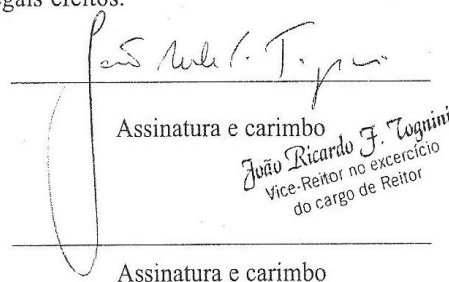 gais efeitos.
Assinatura e carimbo
João Ricardo F. Tognini
Vice-Reitor no excercício
do cargo de Reitor
Assinatura e carimbo